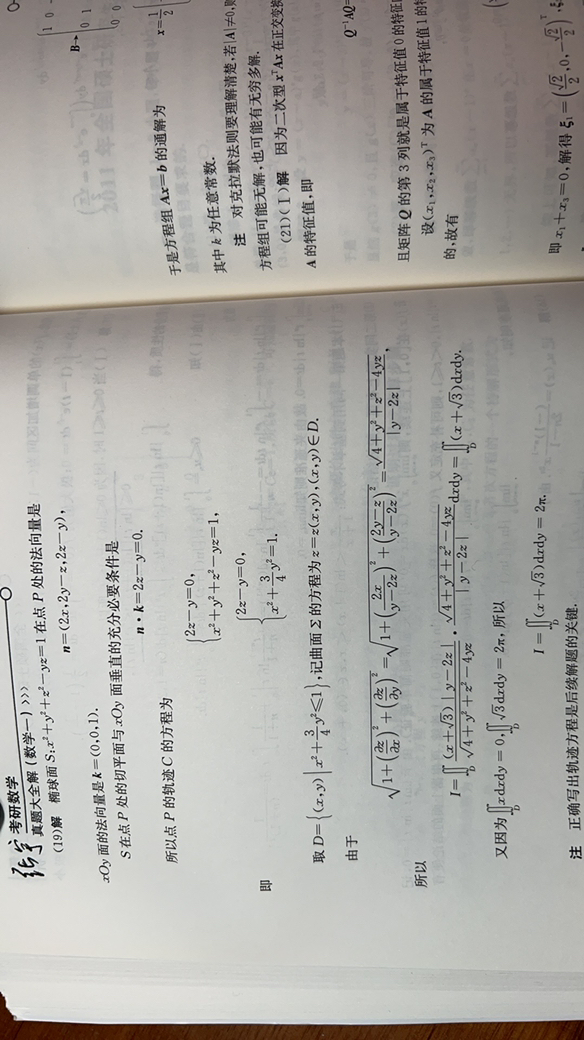 张宇 考研数学
真题大全解(数学一)>>>
(19)解 椭球面 S:x²+y²+z²−yz=1 在点 P 处的法向量是
n=(2x,2y−z,2z−y),
xOy 面的法向量是 k=(0,0,1).
S 在点 P 处的切平面与 xOy 面垂直的充分必要条件是
n·k=2z−y=0.
所以点 P 的轨迹 C 的方程为
{2z−y=0,
x²+y²+z²−yz=1,
即
{2z−y=0,
x²+3/4y²=1.
取 D={(x,y)|x²+3/4y²≤1},记曲面 Σ 的方程为 z=z(x,y),(x,y)∈D.
由于
√(1+(∂z/∂x)²+(∂z/∂y)²)=√(1+(2x/(y−2z))²+((2y−z)/(y−2z))²)=√(4+y²+z²−4yz)/|y−2z|,
所以
I=∬_D (x+√3)|y−2z|/√(4+y²+z²−4yz)·√(4+y²+z²−4yz)/|y−2z| dxdy=∬_D(x+√3)dxdy.
又因为∬_D xdxdy=0,∬_D √3dxdy=2π,所以
I=∬_D(x+√3)dxdy=2π.
注 正确写出轨迹方程是后续解题的关键.
B→
x=1/2
于是方程组 Ax=b 的通解为
其中 k 为任意常数.
注 对克拉默法则要理解清楚,若|A|≠0,则
方程组可能无解,也可能有无穷多解.
(21)(Ⅰ)解 因为二次型 xᵀAx 在正交变换
A 的特征值,即
Q⁻¹AQ=
且矩阵 Q 的第 3 列就是属于特征值 0 的特征
设(x₁,x₂,x₃)ᵀ 为 A 的属于特征值 1 的特
的,故有
即 x₁+x₃=0,解得 ξ₁=(√2/2,0,−√2/2)ᵀ,